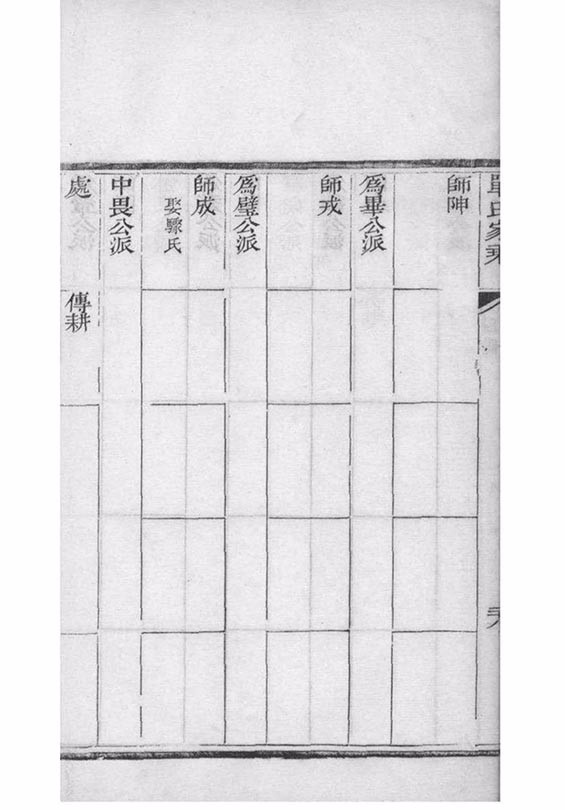 單氏家乘
師呻
為畢公派
師戎
為璧公派
師成
娶縣氏
中畏公派
處
傳耕